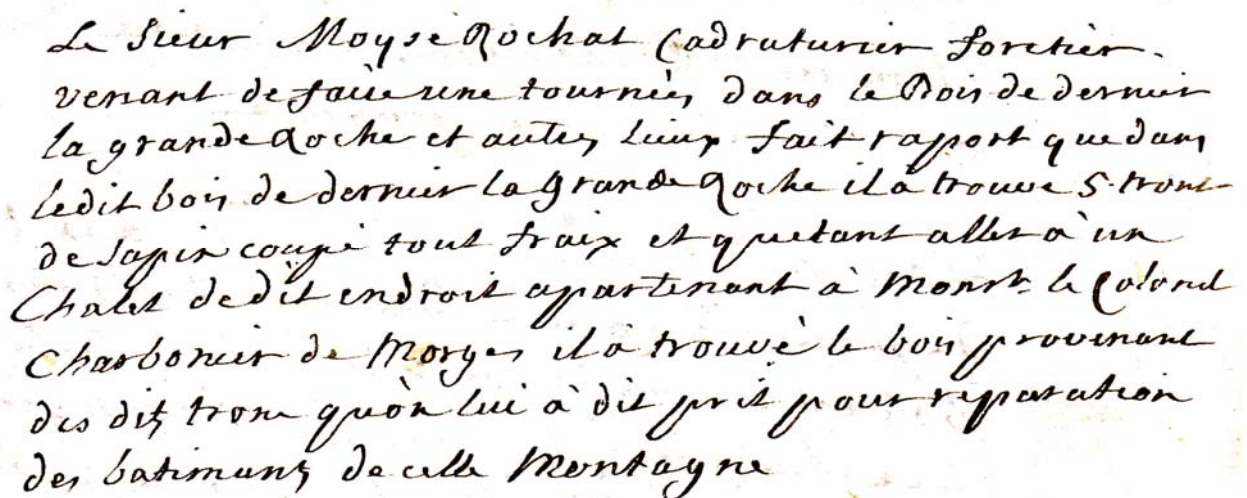 Le Sieur Moyse Rochat Cadraturier foretier
venant de faire une tournéz dans le Bois de dernier
la grande Roche et autez lieux fait raport que dans
ledit bois de dernier la Grande Roche il à trouvé 5 tront
de sapin coupé tout fraix et quetant aller à un
Chalet dedit endroit apartenant à Monsr. le Colonel
Charbonier de Morges il à trouvè le bois provenant
des ditz tronc quòn lui à dit prit pour reparation
des batimanz de celle Montagne